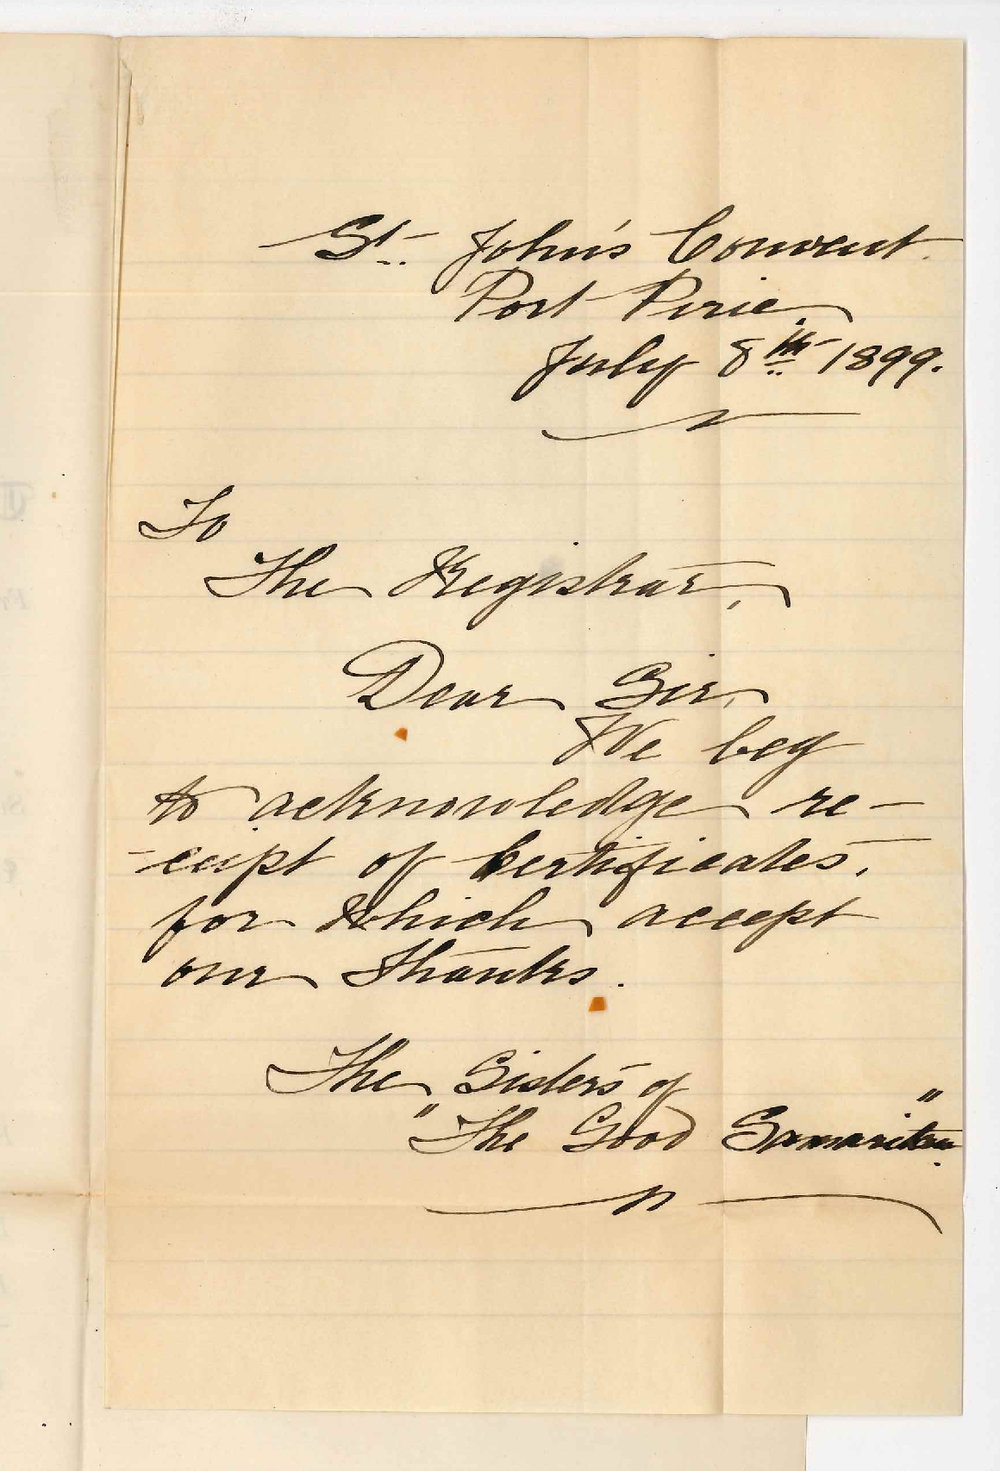 St. John's Convent.
Port Pirie.
July 8th 1899.
To
The Registrar,
Dear Sir,
We beg
to acknowledge re-
-ceipt of Certificates,
for which accept
our thanks.
The Sisters of
"The Good Samaritan"